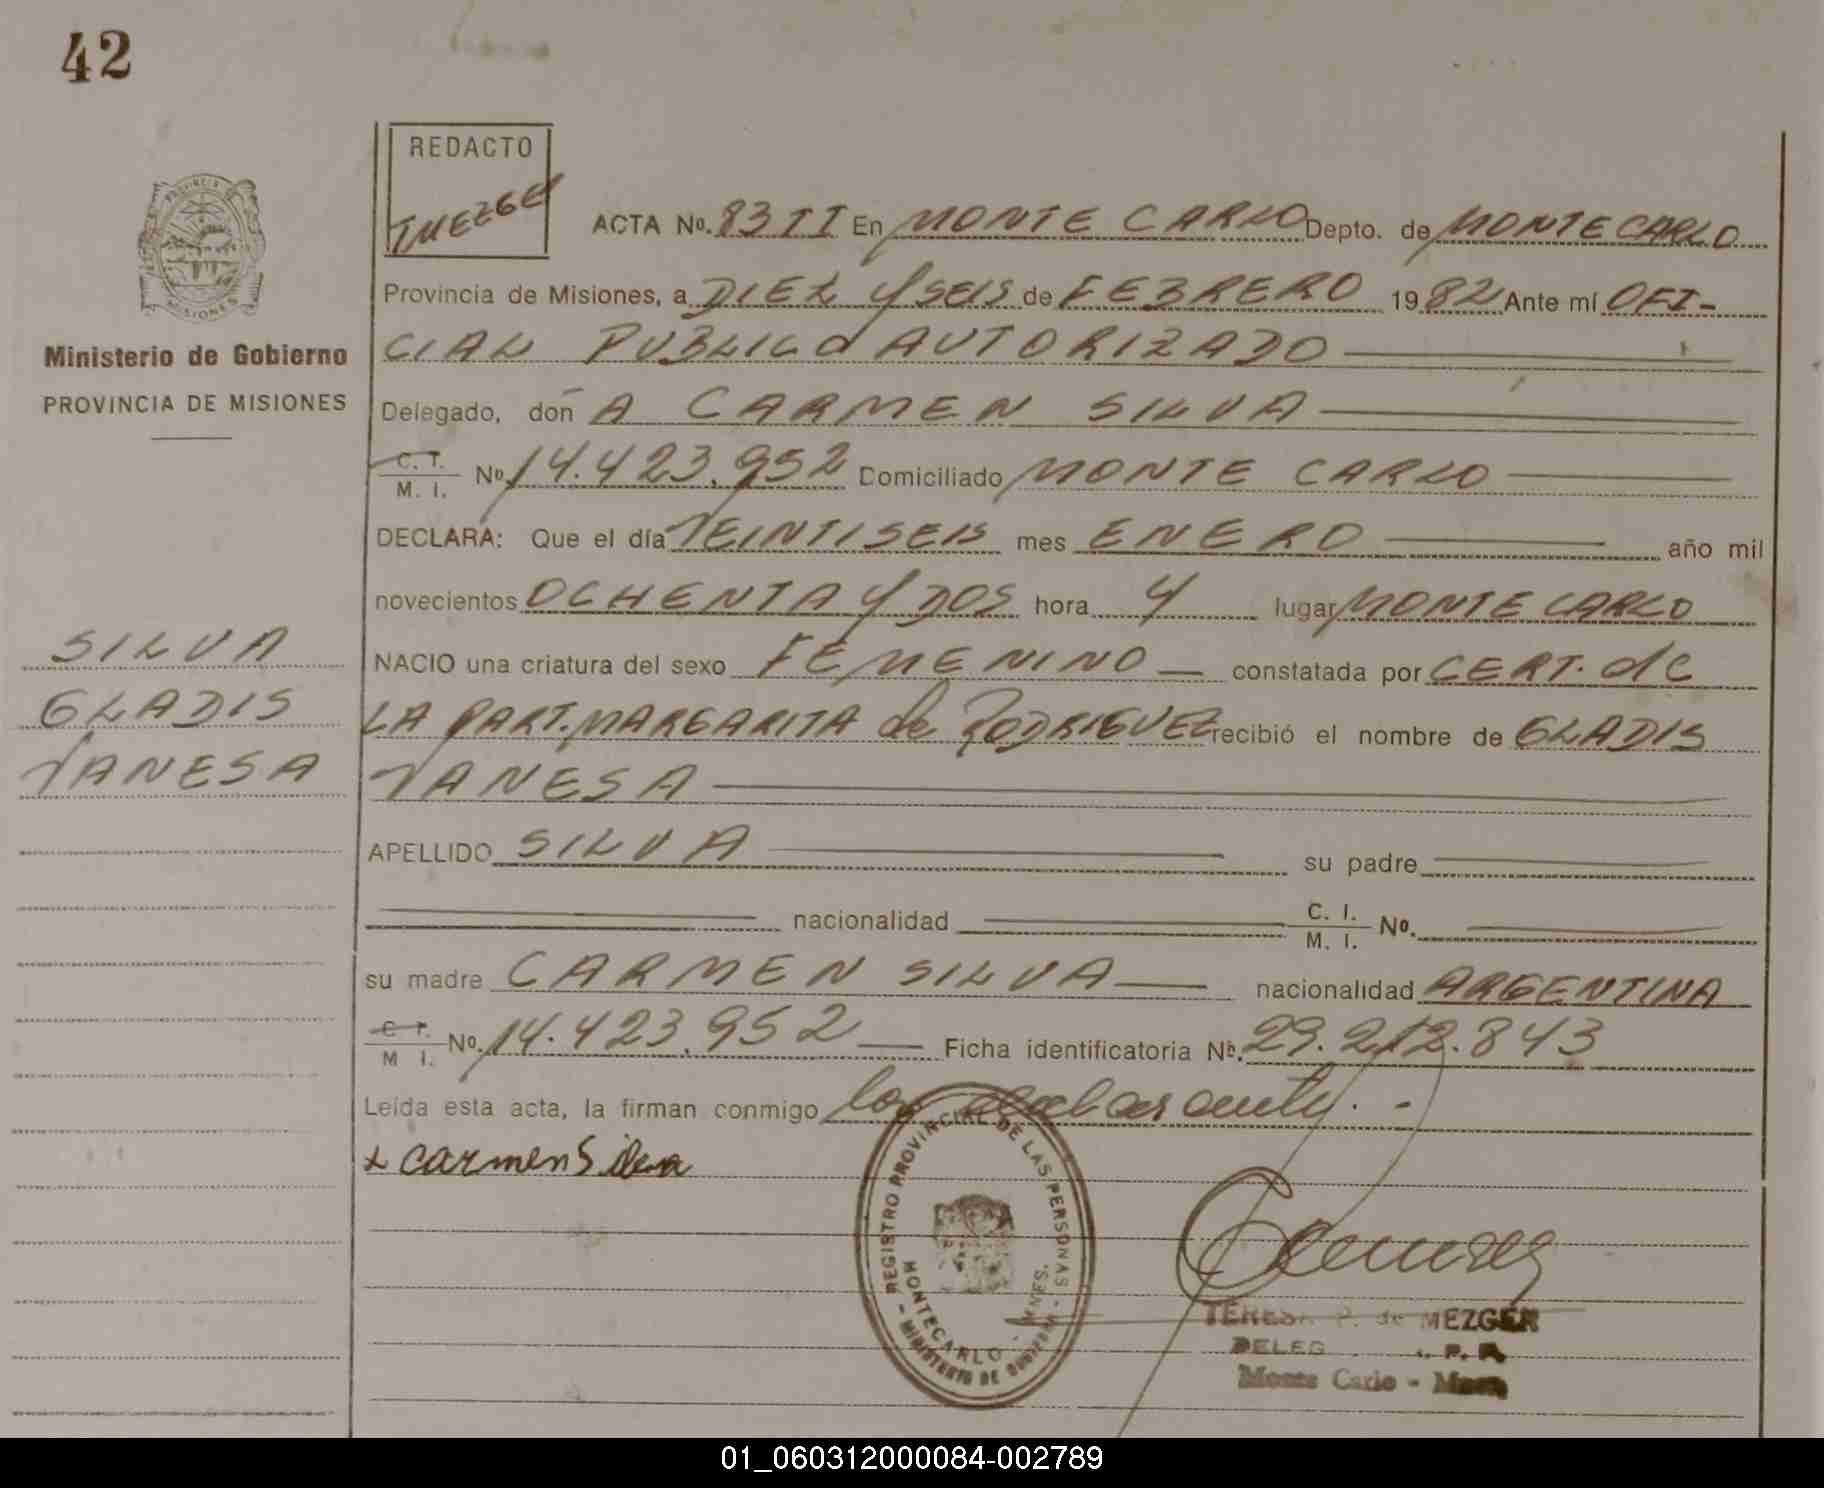 42
REDACTO
TMEZGER
PROVINCIA DE
MISIONES
Ministerio de Gobierno
PROVINCIA DE MISIONES
SILVA
GLADIS
VANESA
ACTA No. 83 II En MONTE CARLO Depto. de MONTECARLO
Provincia de Misiones, a DIEZ Y SEIS de FEBRERO 1982 Ante mí OFI-
CIAL PUBLICO AUTORIZADO
Delegado, don A CARMEN SILVA
C. I. M. I. No. 14.423.952 Domiciliado MONTE CARLO
DECLARA: Que el día VEINTISEIS mes ENERO año mil
novecientos OCHENTA Y DOS hora 4 lugar MONTE CARLO
NACIO una criatura del sexo FEMENINO constatada por CERT. de
LA PART. MARGARITA de RODRIGUEZ recibió el nombre de GLADIS
VANESA
APELLIDO SILVA su padre
nacionalidad C. I. M. I. No.
su madre CARMEN SILVA nacionalidad ARGENTINA
C. I. M. I. No. 14.423.952 Ficha identificatoria No. 29.212.843
Leída esta acta, la firman conmigo la declarante.-
x Carmen Silva
REGISTRO PROVINCIAL DE LAS PERSONAS
MONTECARLO - MNES.
- MINISTERIO DE GOBIERNO -
TERESA P. de MEZGER
DELEG R. P. P.
Monte Carlo - Mnes.
01_060312000084-002789